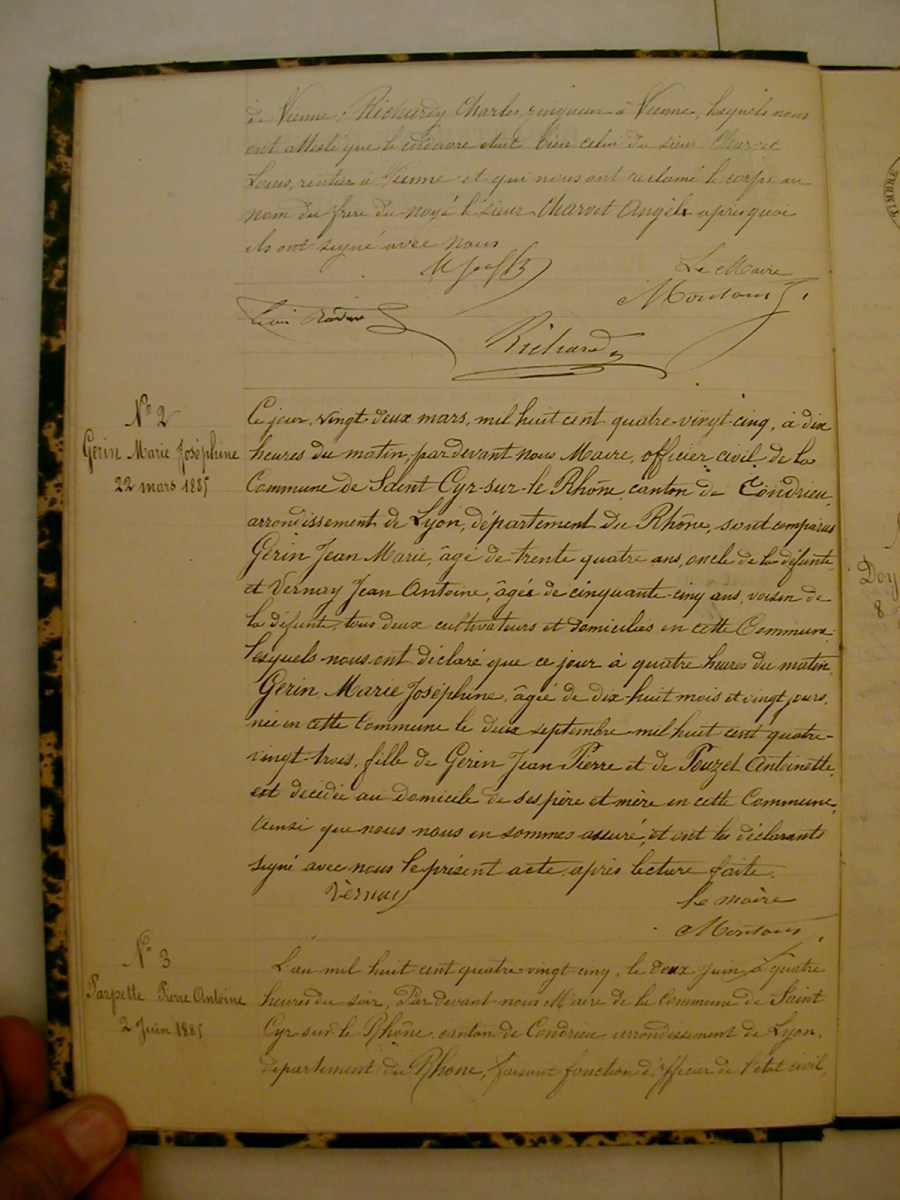 de Vienne, Richardy Charles, zingueur à Vienne, lesquels nous
ont attesté que le cadavre était bien celui du sieur Charvet
Louis, rentier à Vienne et qui nous ont réclamé le corps au
nom du frère du noyé le sieur Charvet Angèle après quoi
ils ont signé avec nous
Le Maire
Richard
TIMBRE
N° 2
Gerin Marie Joséphine
22 mars 1885
Ce jour, vingt deux mars, mil huit cent quatre-vingt-cinq, à dix
heures du matin, par devant nous Maire, officier civil de la
Commune de Saint Cyr-sur-le Rhône, canton de Condrieu,
arrondissement de Lyon, département du Rhône, sont comparus
Gerin Jean Marie, âgé de trente quatre ans, oncle de la défunte,
et Vernay Jean Antoine, âgé de cinquante-cinq ans, voisin de
la défunte, tous deux cultivateurs et domiciliés en cette Commune,
lesquels nous ont déclaré que ce jour à quatre heures du matin,
Gerin, Marie Joséphine, âgée de dix-huit mois et vingt jours,
née en cette Commune le deux septembre mil huit cent quatre-
vingt-trois, fille de Gerin Jean Pierre et de Pouzet Antoinette,
est décédée au domicile de ses père et mère en cette Commune,
Ainsi que nous nous en sommes assuré, et ont les déclarants
signé avec nous le présent acte, après lecture faite.
Vernay
le maire
N° 3
Parpette Pierre Antoine
2 Juin 1885
L'an mil huit cent quatre vingt cinq, le deux juin, à quatre
heures du soir, Par devant nous Maire de la Commune de Saint
Cyr sur le Rhône, canton de Condrieu, arrondissement de Lyon,
département du Rhône, faisant fonction d'officier de l'état civil,
Doy
8